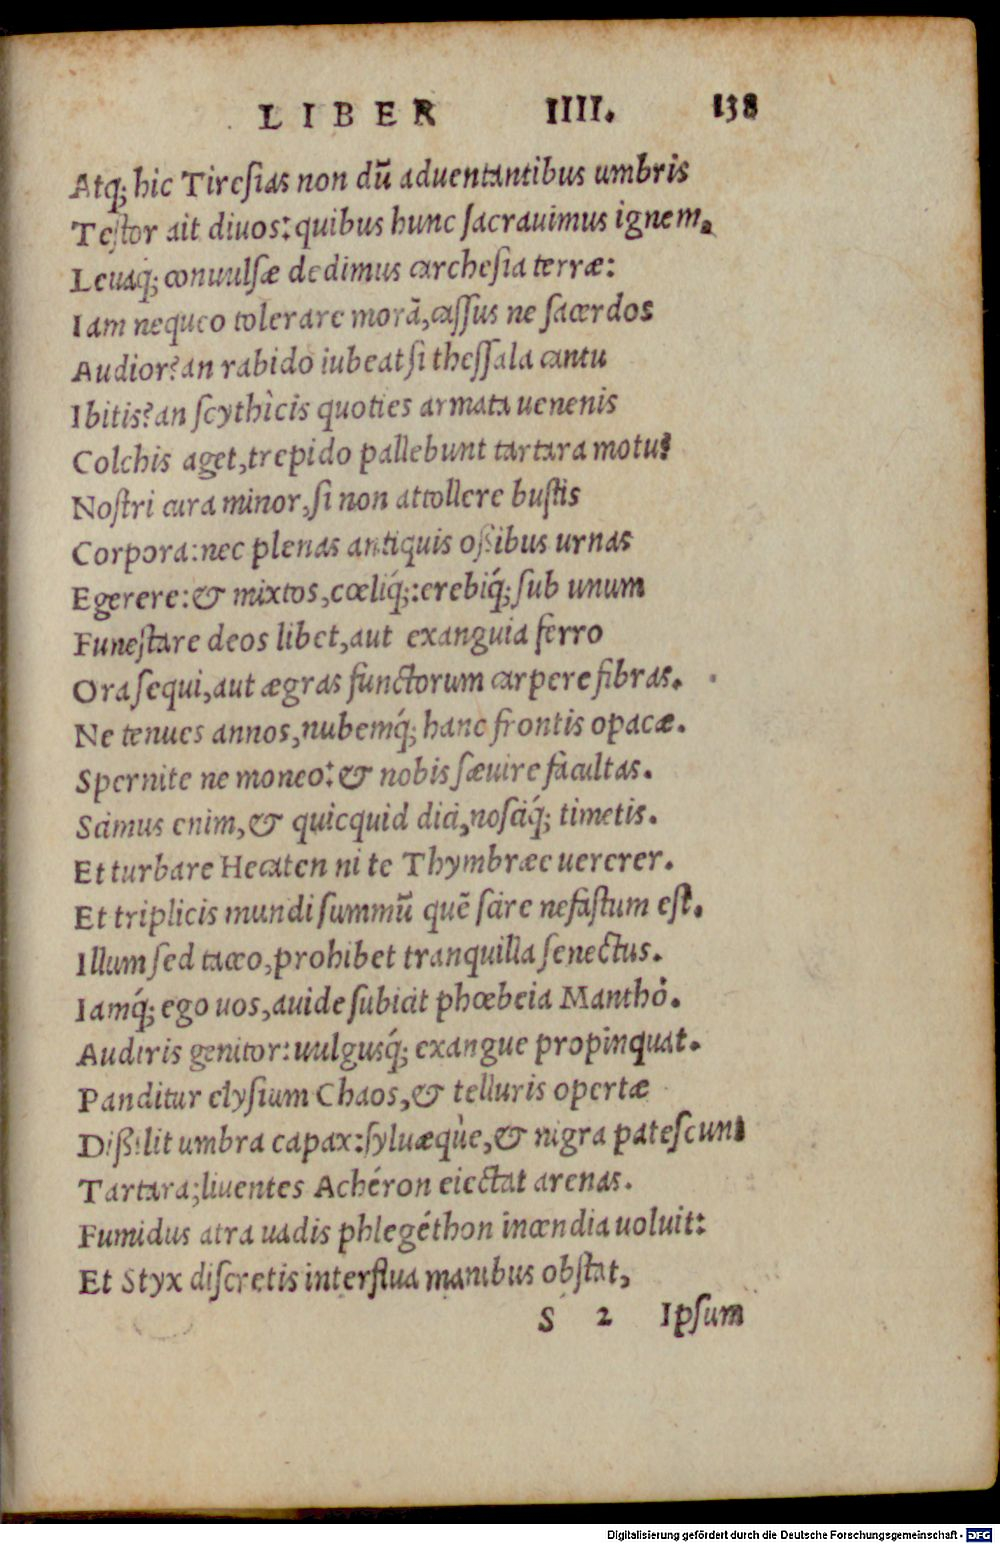 LIBER IIII. 138
Atq; hic Tiresias non dũ aduentantibus umbris
Testor ait diuos: quibus hunc sacrauimus ignem.
Leuaq; conuulsæ dedimus carchesia terræ:
Iam nequeo tolerare morã, cassus ne sacerdos
Audior? an rabido iubeat si thessala cantu
Ibitis? an scythìcis quoties armata uenenis
Colchis aget, trepido pallebunt tartara motu?
Nostri cura minor, si non attollere bustis
Corpora: nec plenas antiquis oßibus urnas
Egerere: & mixtos, cœliq́;: erebiq́; sub unum
Funestare deos libet, aut exanguia ferro
Ora sequi, aut ægras functorum carpere fibras.
Ne tenues annos, nubemq́; hanc frontis opacæ.
Spernite ne moneo: & nobis sæuire facultas.
Scimus enim, & quicquid dici, nosciq́; timetis.
Et turbare Hecaten ni te Thymbræe uererer.
Et triplicis mundi summũ quẽ scire nefastum est.
Illum sed taceo, prohibet tranquilla senectus.
Iamq́; ego uos, auide subicit phœbeia Manthò.
Audiris genitor: uulgusq́; exangue propinquat.
Panditur elysium Chaos, & telluris opertæ
Dißilit umbra capax: syluæquè, & nigra patescunt
Tartara; liuentes Achéron eiectat arenas.
Fumidus atra uadis phlegéthon incendia uoluit:
Et Styx discretis interflua manibus obstat,
S 2 Ipsum
Digitalisierung gefördert durch die Deutsche Forschungsgemeinschaft - DFG